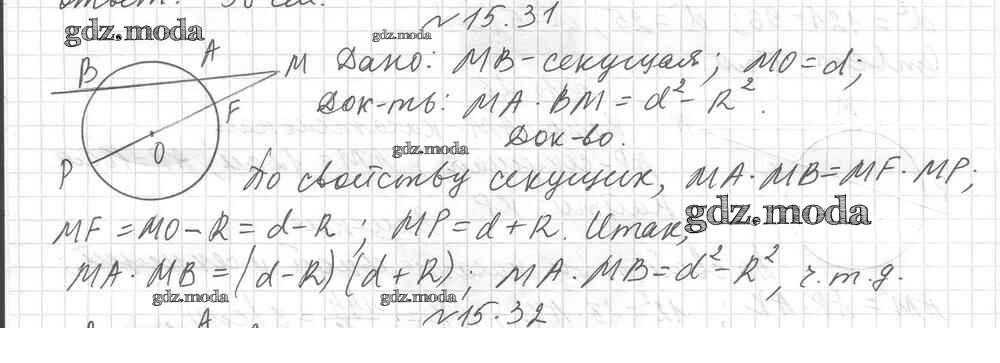 ответ: 30 см.
№15.31
gdz.moda
gdz.moda
B A M F O P
Дано: MB-секущая; MO=d;
Док-ть: MA·BM=d²-R².
Док-во.
gdz.moda
По свойству секущих, MA·MB=MF·MP;
gdz.moda
MF=MO-R=d-R; MP=d+R. Итак,
MA·MB=(d-R)(d+R); MA·MB=d²-R², ч.т.д.
gdz.moda
gdz.moda
№15.32
A